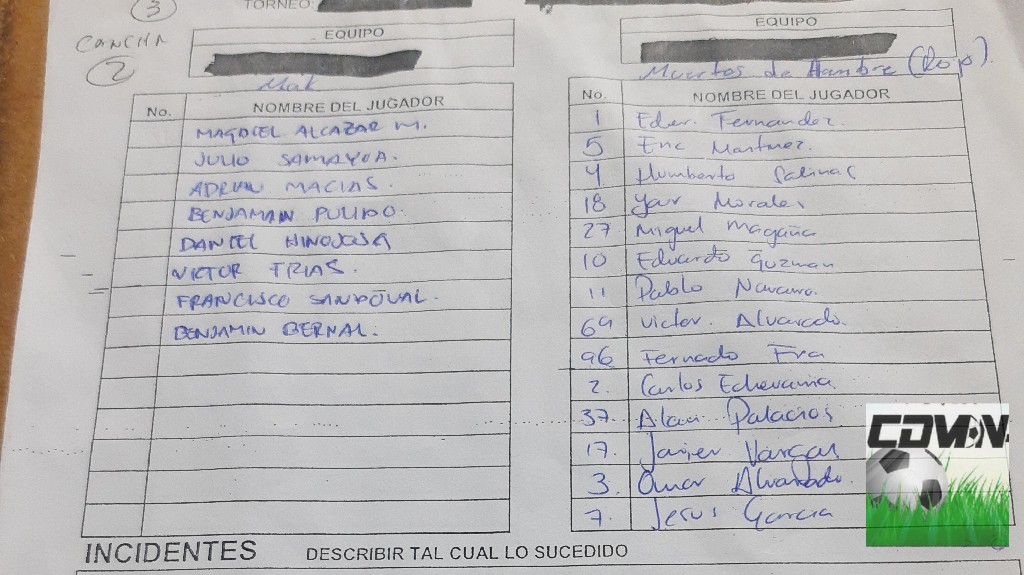 3
TORNEO:
CANCHA
2
EQUIPO
Muk
No. NOMBRE DEL JUGADOR
MAGDIEL ALCAZAR M.
JULIO SAMAYOA.
ADRIAN MACIAS.
BENJAMAIN PULIDO.
DANIEL HINOJOSA
VICTOR TRIAS.
FRANCISCO SANDOVAL.
BENJAMIN BERNAL.
EQUIPO
Muertos de Hambre (Rojo).
No. NOMBRE DEL JUGADOR
1 Eder. Fernandez.
5 Eric Martinez.
4 Humberto Salinas
18 Yair Morales
27 Miguel Magaña
10 Eduardo Guzman
11 Pablo Navarro.
69 Victor. Alvarado.
96 Fernado
2. Carlos Echevarria
37. Alan Palacios
17. Javier Vargas
3. Omar Alvarado.
7. Jesus Garcia
CDMXN
INCIDENTES DESCRIBIR TAL CUAL LO SUCEDIDO